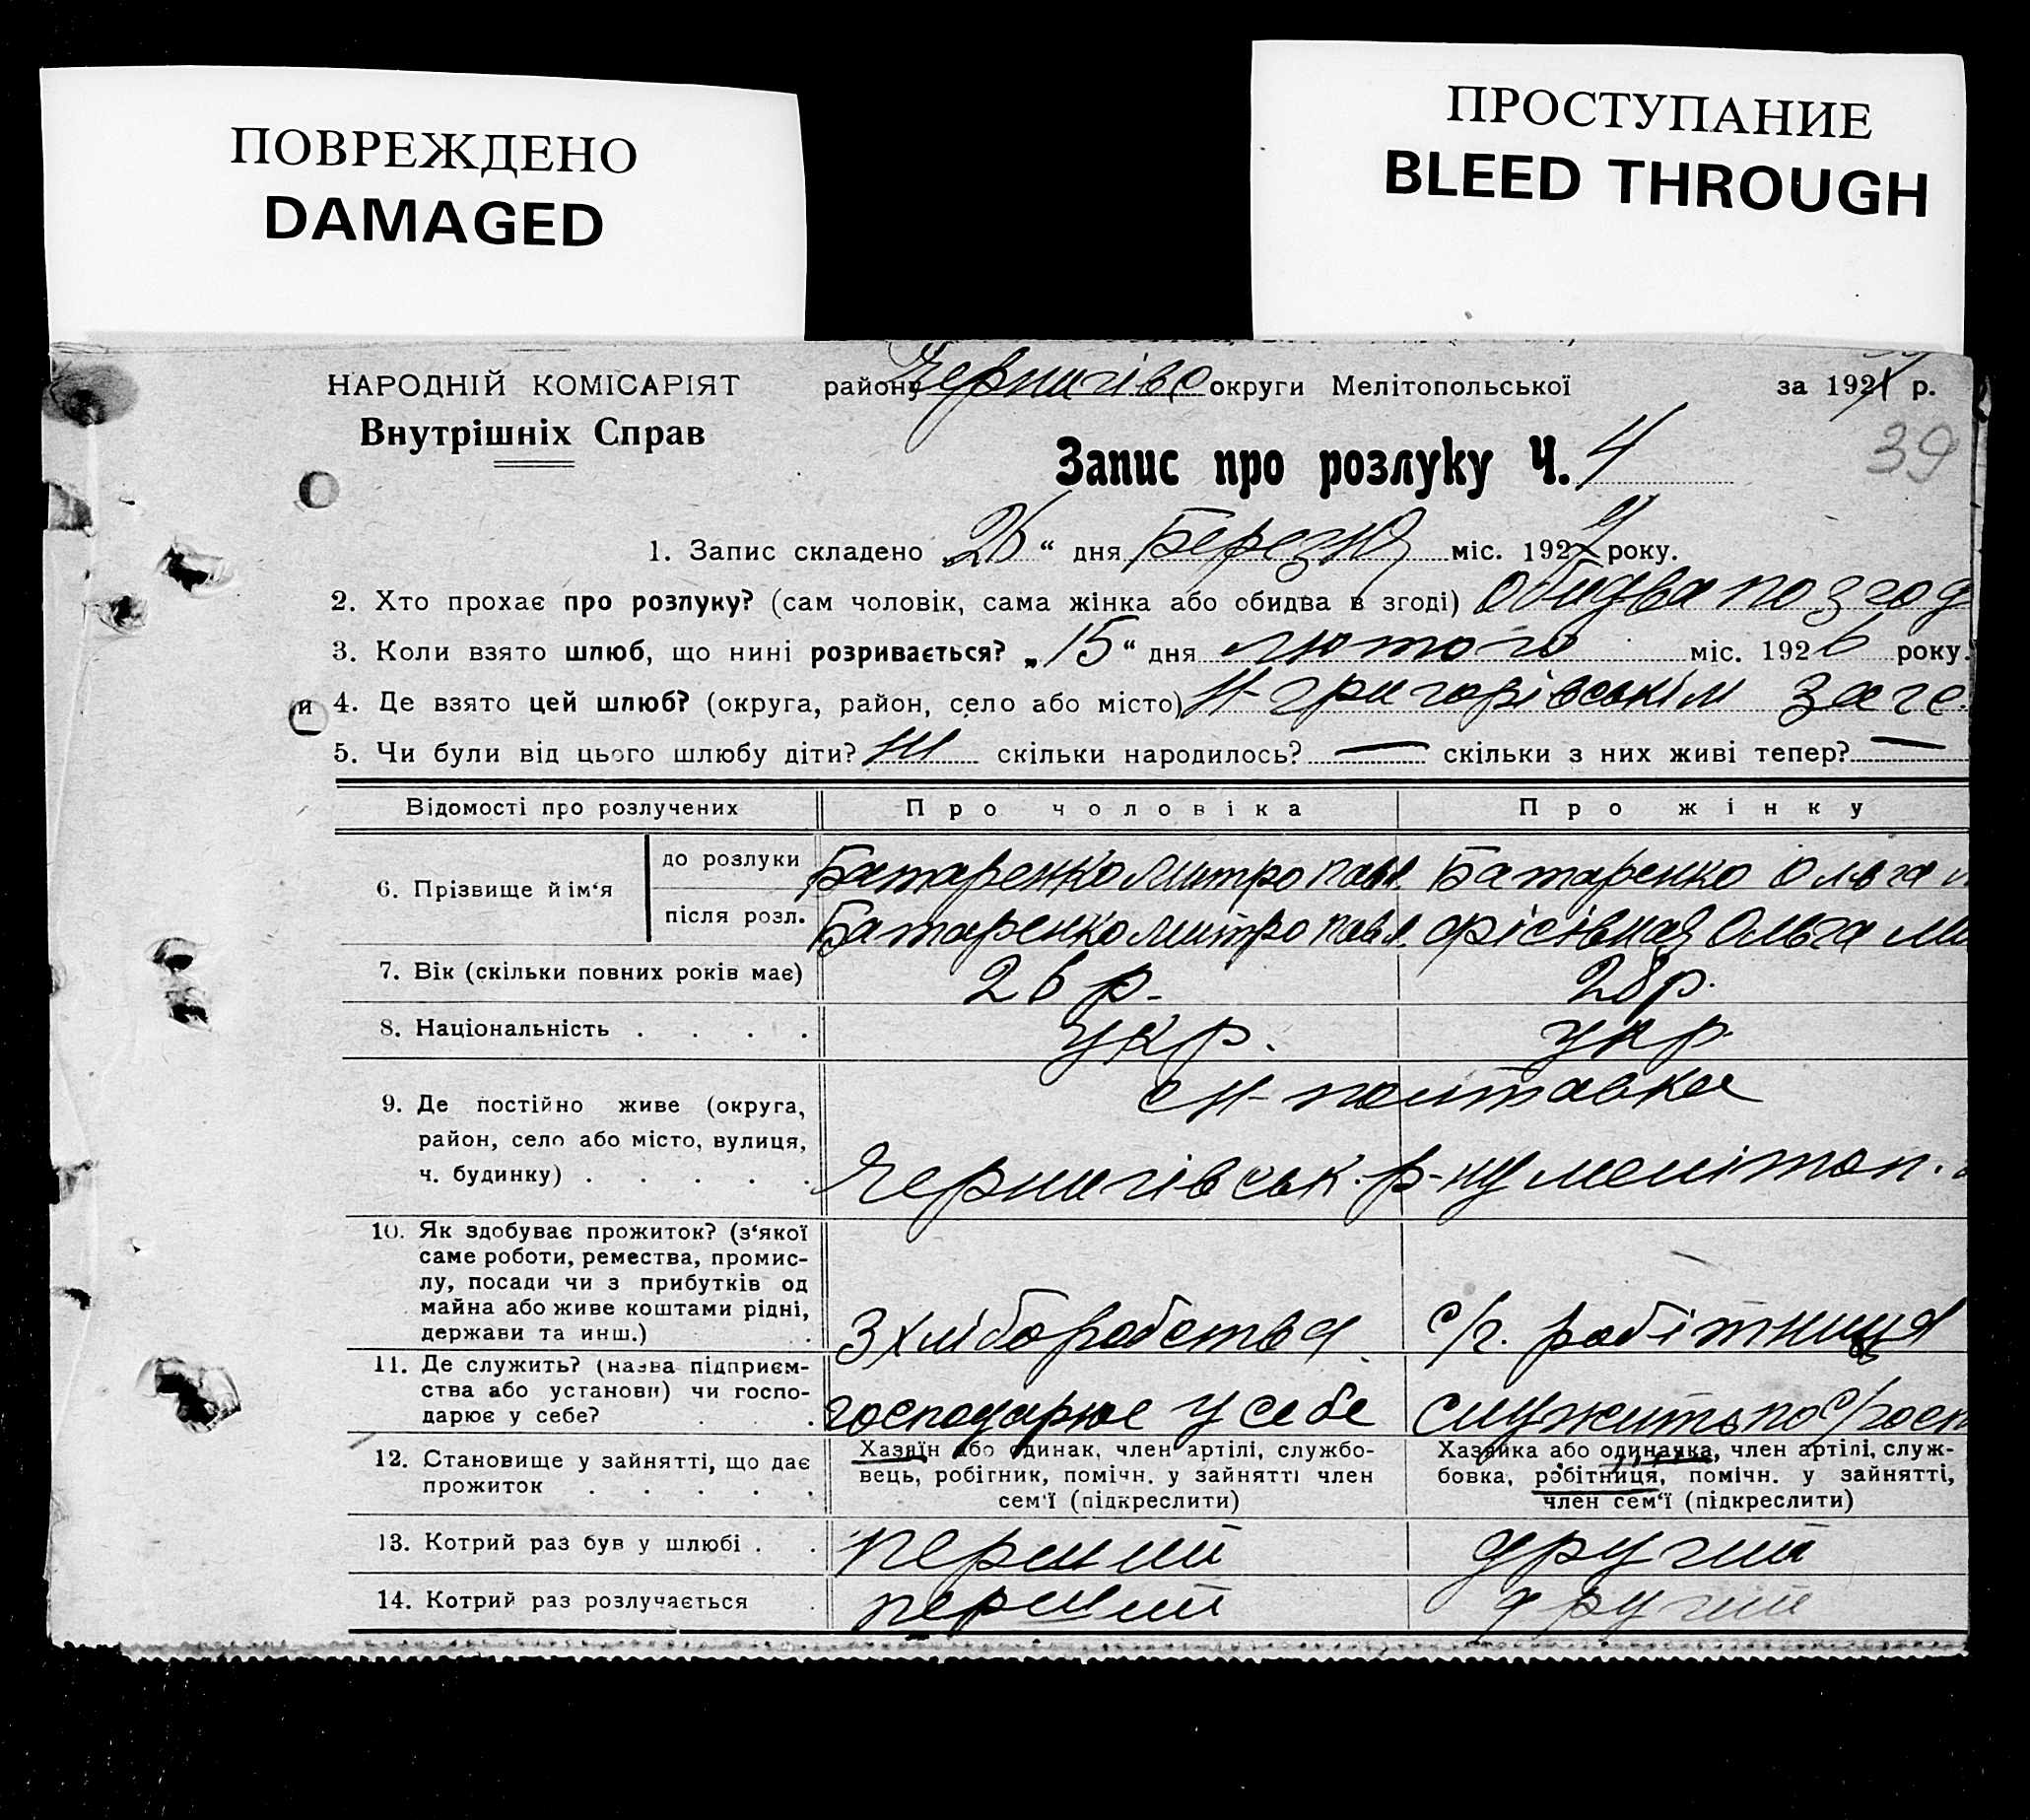 ПОВРЕЖДЕНО
DAMAGED
ПРОСТУПАНИЕ
BLEED THROUGH
НАРОДНІЙ КОМІСАРІЯТ
Внутрішніх Справ
району Чернигівс округи Мелітопольської за 192 р.
Запис про розлуку Ч. 4
39
1. Запис складено „26“ дня Березня міс. 1927 року.
2. Хто прохає про розлуку? (сам чоловік, сама жінка або обидва в згоді) Обидва по згод
3. Коли взято шлюб, що нині розривається? „15“ дня лютого міс. 1926 року.
и 4. Де взято цей шлюб? (округа, район, село або місто) Н-григорівськім заге.
5. Чи були від цього шлюбу діти? ні скільки народилось? — скільки з них живі тепер? —
Відомості про розлучених
Про чоловіка
Про жінку
6. Прізвище й ім‘я
до розлуки
Батаренко Митро Павл.
Батаренко Ольга М
після розл.
Батаренко Митро Павл.
Ольга Ми
7. Вік (скільки повних років має)
26 р.
28 р.
8. Національність . . . .
укр.
укр.
9. Де постійно живе (округа,
район, село або місто, вулиця,
ч. будинку) . . . . .
с Н-полтавка
Чернигівськ. р-ну мелітоп.
10. Як здобуває прожиток? (з‘якої
саме роботи, ремества, промис-
лу, посади чи з прибутків од
майна або живе коштами рідні,
держави та инш.) .
З хліборобства
с/г. робітниця
11. Де служить? (назва підприєм-
ства або установи) чи госпо-
дарює у себе? . . .
господарює у себе
служить по с/госп
12. Становище у зайнятті, що дає
прожиток . . . . .
Хазяїн або одинак, член артілі, службо-
вець, робігник, помічн. у зайнятті член
сем‘ї (підкреслити)
Хазяйка або одиначка, член артілі, служ-
бовка, робітниця, помічн. у зайнятті,
член сем‘ї (підкреслити)
13. Котрий раз був у шлюбі . .
перший
другий
14. Котрий раз розлучається .
перший
другий